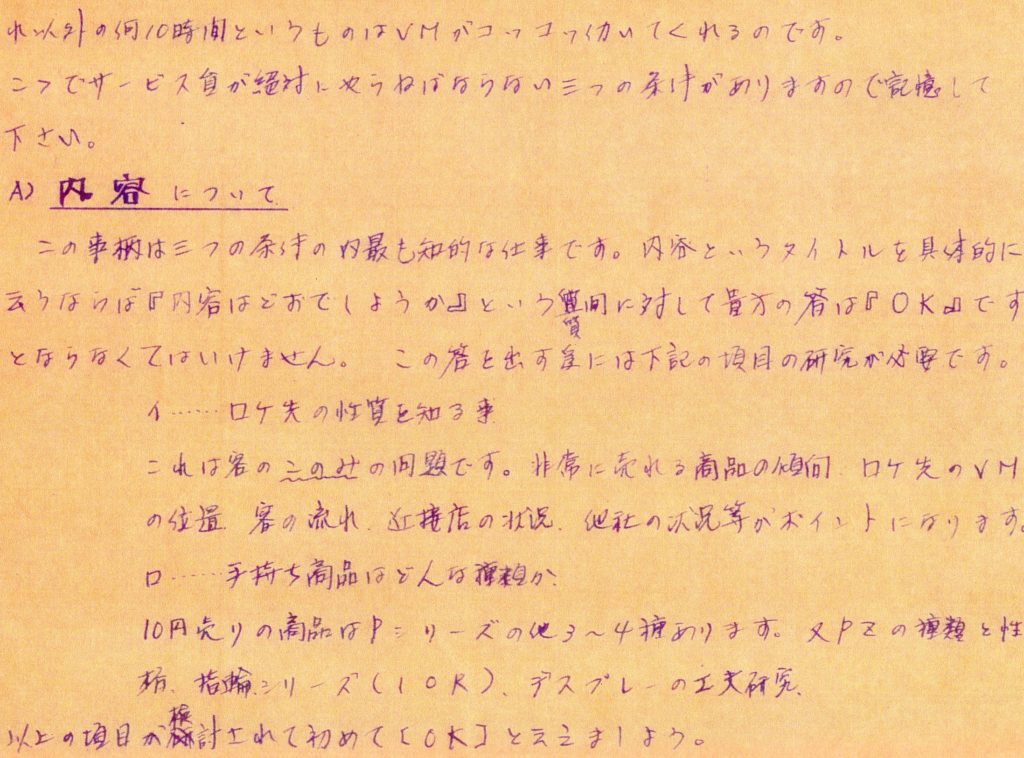 れ以外の何10時間というものはVMがコツコツ仂いてくれるのです。
こゝでサービス員が絶対にやらねばならない三つの条件がありますので記憶して
下さい。
A) 内容について
この事柄は三つの条件の内最も知的な仕事です。内容というタイトルを具体的に
云うならば『内容はどおでしようか』という質問に対して貴方の答は『OK』です
とならなくてはいけません。 この答を出す為には下記の項目の研究が必要です。
イ……ロケ先の性質を知る事
これは客のこのみの問題です。非常に売れる商品の傾向、ロケ先のVM
の位置、客の流れ、近接店の状況、他社の状況等がポイントになります。
ロ……手持ち商品はどんな種類か、
10円売りの商品はPシリーズの他3～4種あります。又PZの種類と性
柄、指輪シリーズ(10R)、デスプレーの工夫研究、
以上の項目が検討されて初めて[OK]と云えましよう。